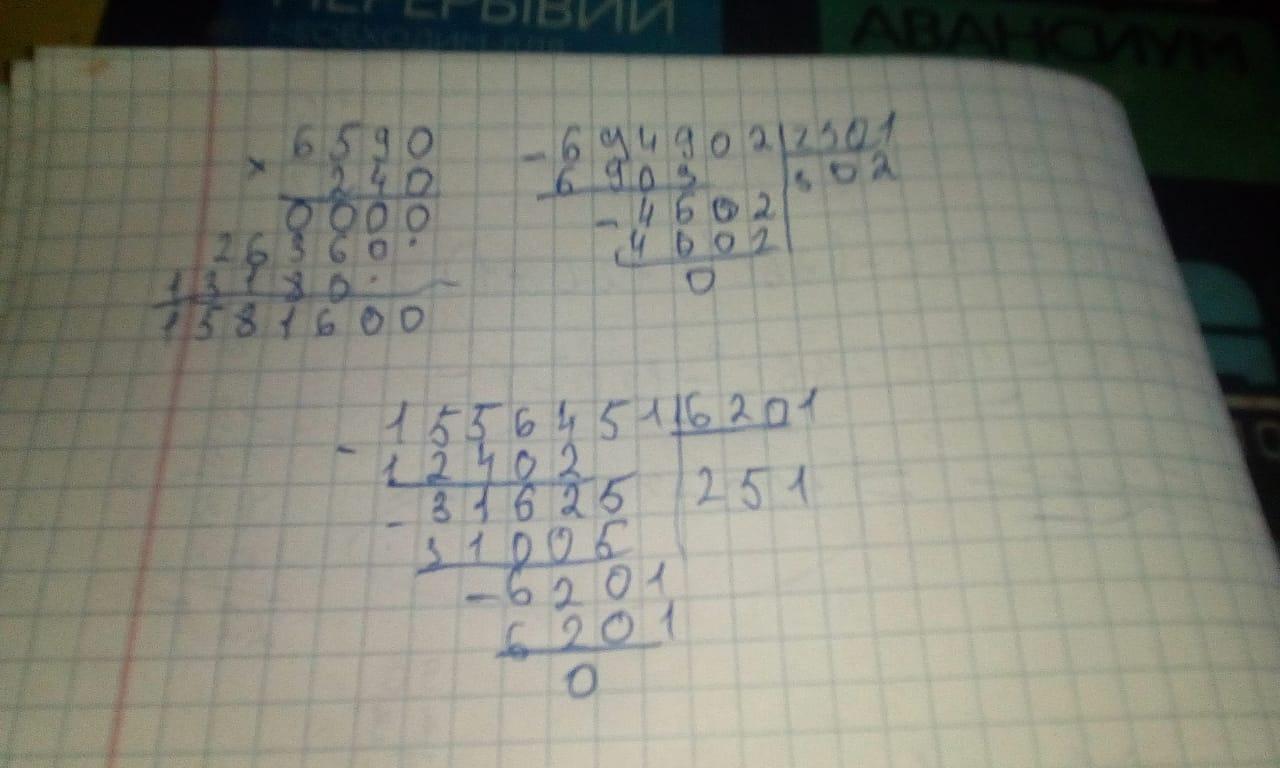 ПЕРЕРЫВИЙ
АВАНСИУМ
6590
× 240
0000
26360·
13180·
1581600
- 694902 | 2301
6903 302
- 4602
4602
0
- 1556451 | 6201
12402
- 31625 251
31005
- 6201
6201
0